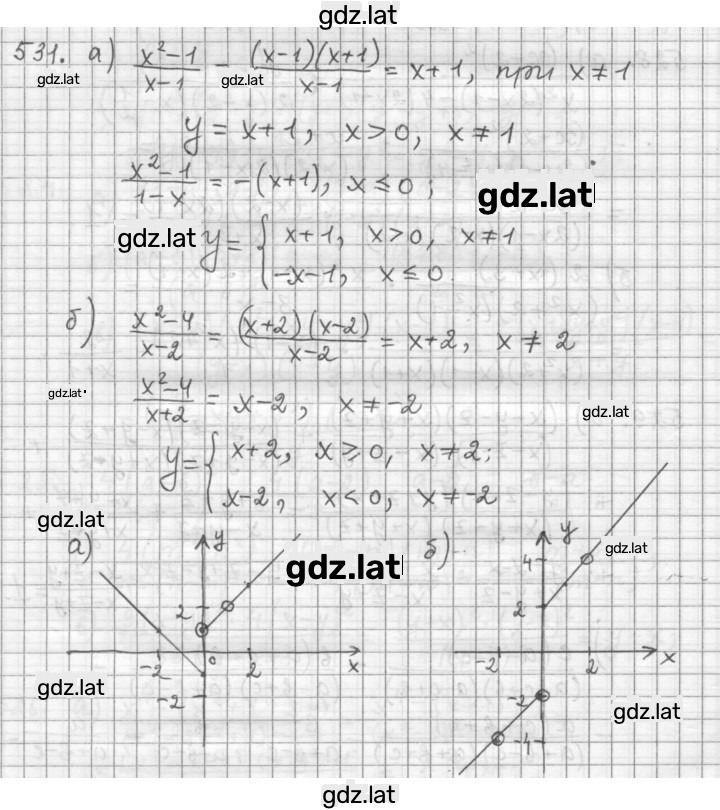 gdz.lat
531. а) (x²-1)/(x-1) - ((x-1)(x+1))/(x-1) = x+1, при x ≠ 1
gdz.lat gdz.lat
y = x+1, x > 0, x ≠ 1
(x²-1)/(1-x) = -(x+1), x ≤ 0;
gdz.lat
gdz.lat y = { x+1, x > 0, x ≠ 1
-x-1, x ≤ 0.
б) (x²-4)/(x-2) = ((x+2)(x-2))/(x-2) = x+2, x ≠ 2
gdz.lat
(x²-4)/(x+2) = x-2, x ≠ -2
gdz.lat
y = { x+2, x ≥ 0, x ≠ 2;
x-2, x < 0, x ≠ -2
gdz.lat
а) y
gdz.lat
б) y
gdz.lat
4
2
2
-2 0 2 x
-2 2 x
gdz.lat
-2
-2
gdz.lat
-4
gdz.lat